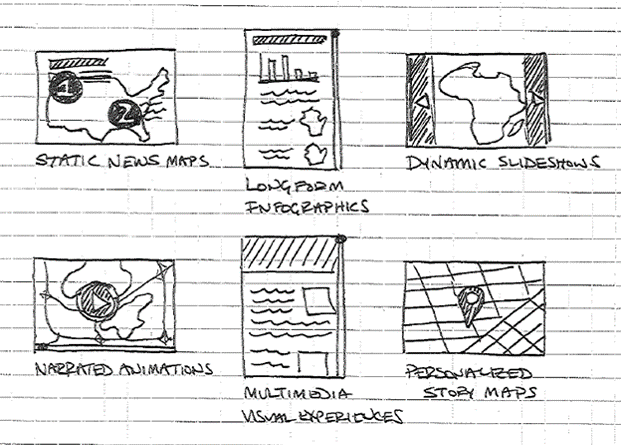 1
2
STATIC NEWS MAPS
LONGFORM
INFOGRAPHICS
DYNAMIC SLIDESHOWS
NARRATED ANIMATIONS
MULTIMEDIA
VISUAL EXPERIENCES
PERSONALIZED
STORY MAPS